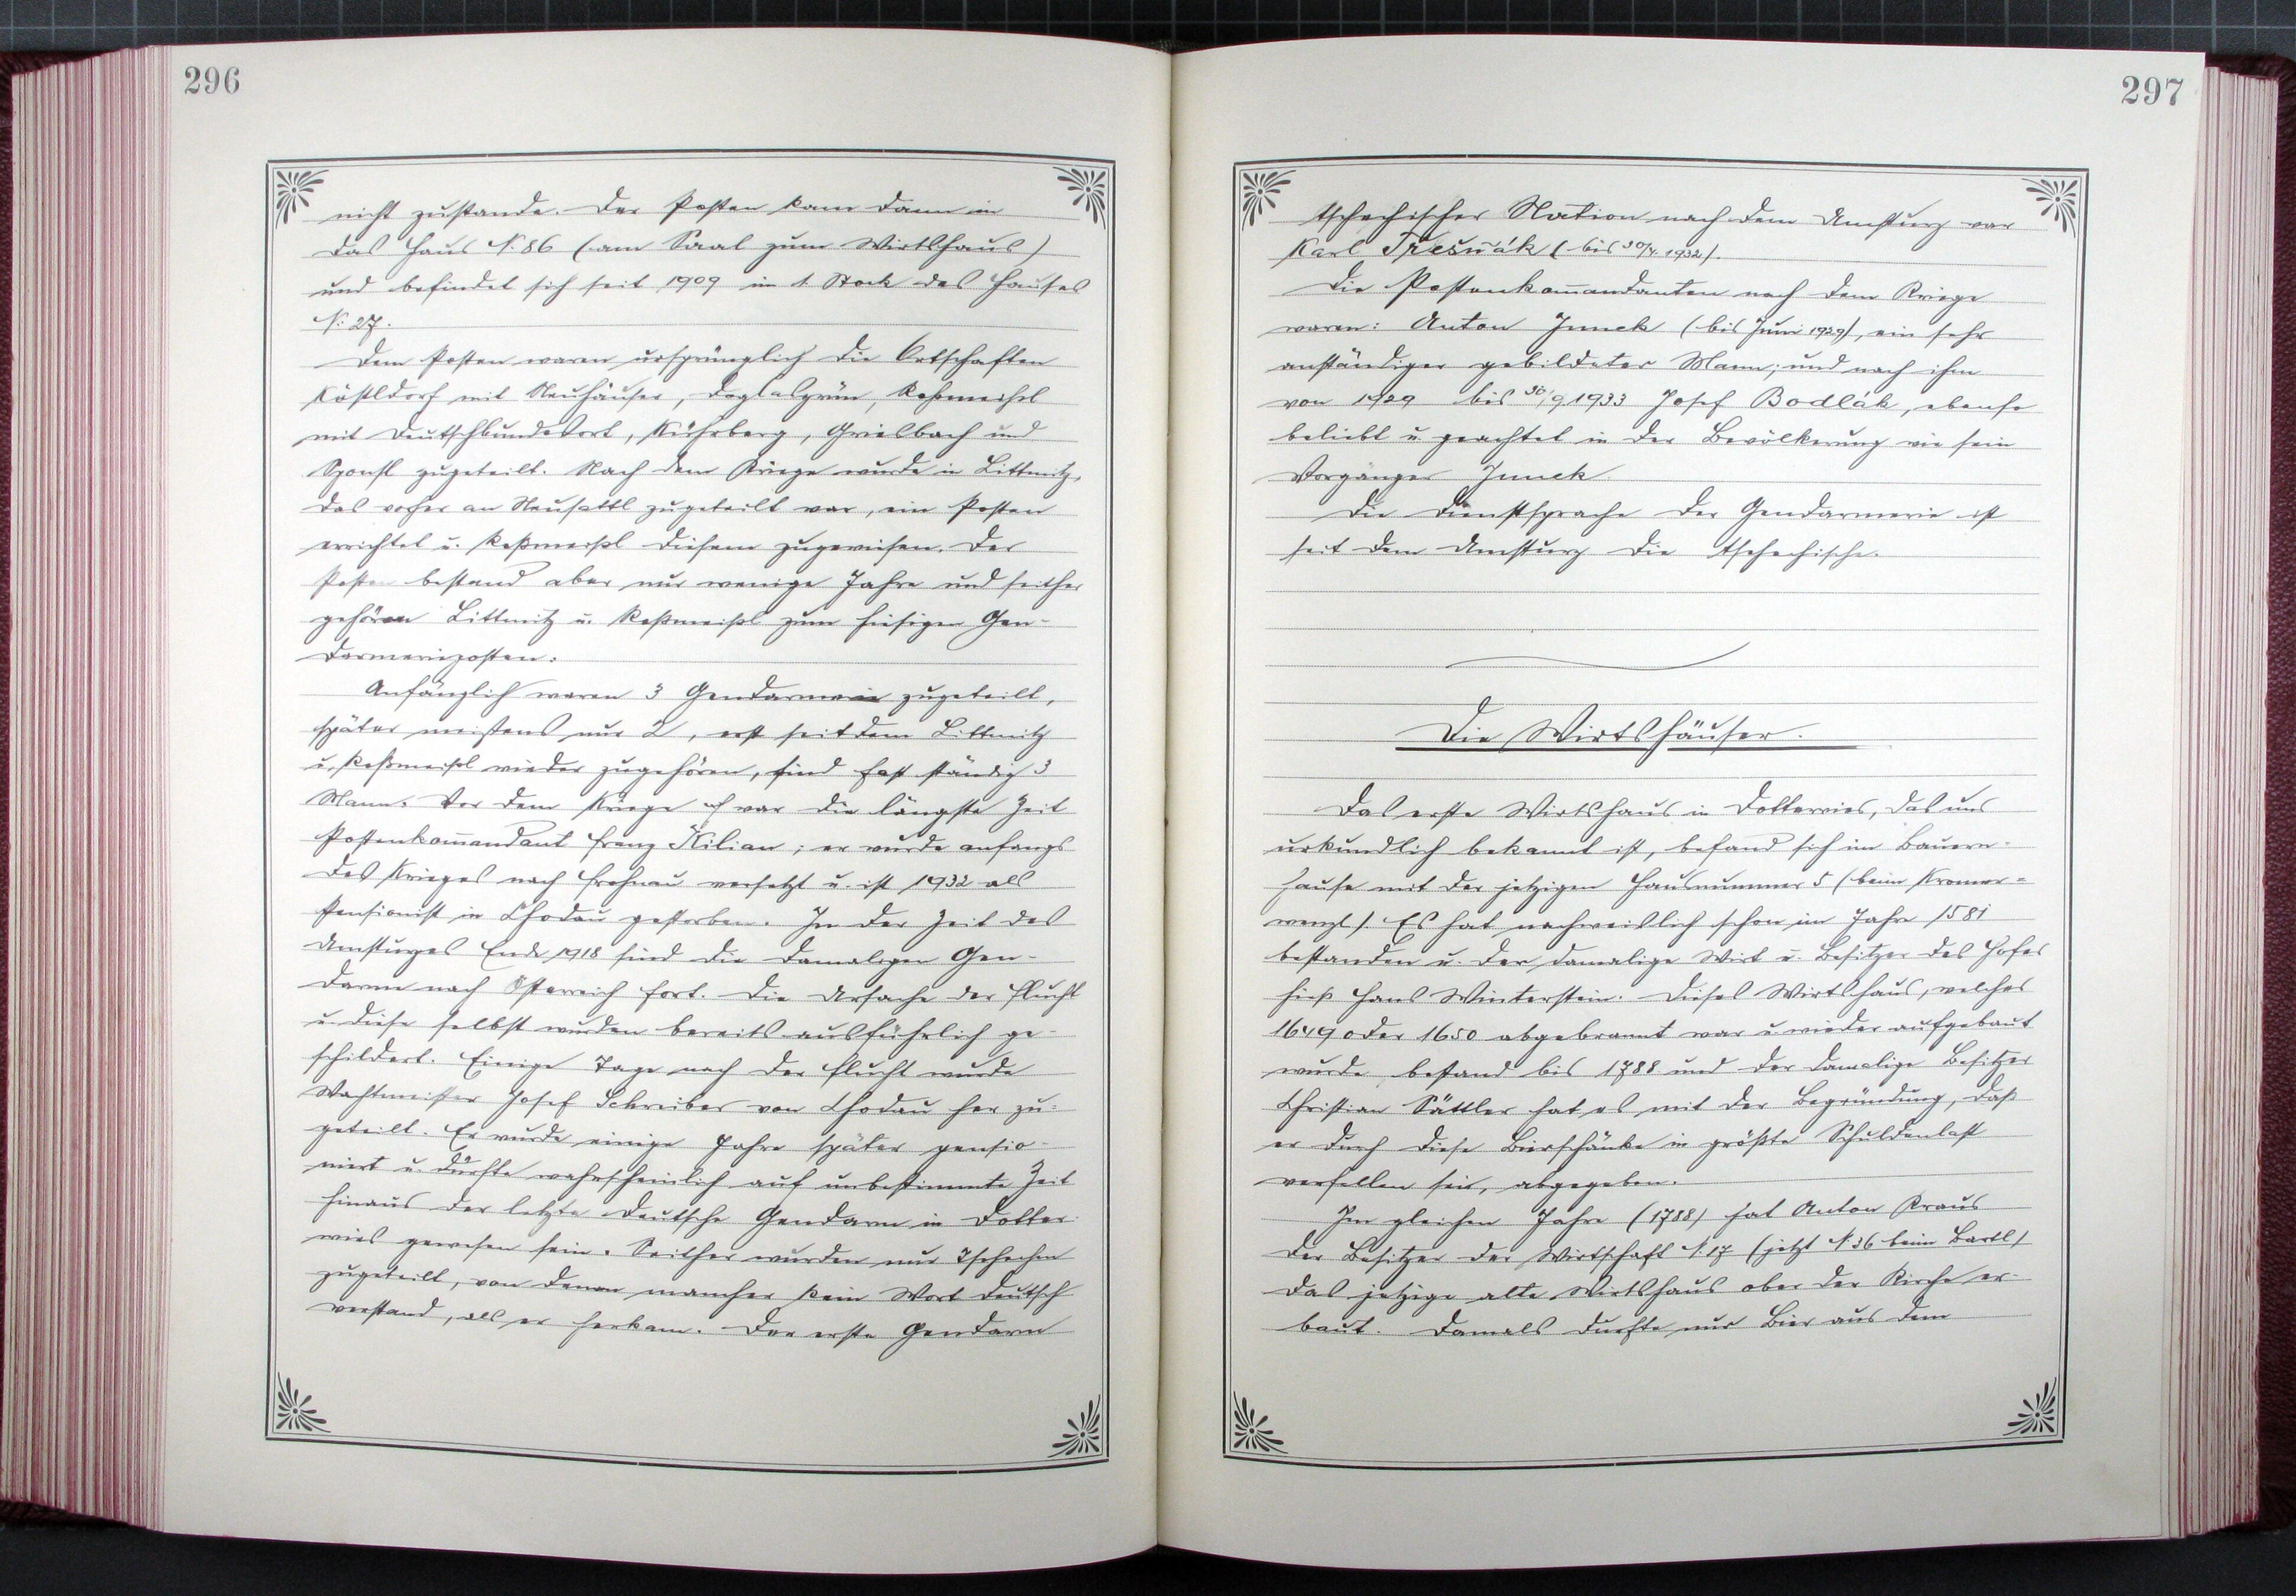 296
nicht zustande. Der Posten kam dann in
das Haus N. 86 (am Saal zum Wirtshaus)
und befindet sich seit 1909 im 1. Stock des Hauses
N: 27.
Dem Posten waren ursprünglich die Ortschaften
Köstldorf mit Neuhäuser, Doglasgrün, Roßmeisl
mit Deutschbundesort, Kührberg, Griesbach und
Sponsl zugeteilt. Nach dem Kriege wurde in Littmitz,
das vorher an Neusattl zugeteilt war, ein Posten
errichtet u. Roßmeisl diesem zugewiesen. Der
Posten bestand aber nur wenige Jahre und seither
gehören Littmitz u. Roßmeisl zum hiesigen Gen-
darmerieposten.
Anfänglich waren 3 Gendarmen zugeteilt,
später meistens nur 2, erst seitdem Littmitz
u. Roßmeisl wieder zugehören, sind fast ständig 3
Mann. Vor dem Kriege war die längste Zeit
Postenkom̄andant Franz Kilian; er wurde anfangs
des Krieges nach Frohnau versetzt u. ist 1932 als
Pensionist in Chodau gestorben. In der Zeit des
Umsturzes Ende 1918 sind die damaligen Gen-
darme nach Österreich fort. Die Ursache der Flucht
u. diese selbst wurden bereits ausführlich ge-
schildert. Einige Tage nach der Flucht wurde
Wachtmeister Josef Schreiber von Chodau her zu-
geteilt. Er wurde einige Jahre später pensio-
niert u. dürfte wahrscheinlich auf unbestimmte Zeit
hinaus der letzte deutsche Gendarm in Dotter-
wies gewesen sein. Seither wurden nur Tschechen
zugeteilt, von denen mancher kein Wort deutsch
verstand, als er herkam. Der erste Gendarm
297
tschechischer Nation nach dem Umsturz war
Karl Třešňák (bis 30/4. 1932).
Die Postenkom̄andanten nach dem Kriege
waren: Anton Junek (bis Juni 1929), ein sehr
anständiger gebildeter Mann; und nach ihm
von 1929 bis 30/9 1933 Josef Bodlák, ebenso
beliebt u geachtet in der Bevölkerung wie sein
Vorgänger Junek.
Die Dienstsprache der Gendarmerie ist
seit dem Umsturz die tschechische.
Die Wirtshäuser.
Das erste Wirtshaus in Dotterwies, das uns
urkundlich bekannt ist, befand sich im Bauern-
hause mit der jetzigen Hausnummer 5 (beim Kromer-
wenzl). Es hat nachweislich schon im Jahre 1581
bestanden u. der damalige Wirt u. Besitzer des Hofes
hieß Hans Winterstein. Dieses Wirtshaus, welches
1649 oder 1650 abgebrannt war u. wieder aufgebaut
wurde, bestand bis 1788 und der damalige Besitzer
Christian Sattler hat es mit der Begründung, daß
er durch diese Bierschänke in größte Schuldenlast
verfallen sei, abgegeben.
Im gleichen Jahre (1788) hat Anton Kraus
der Besitzer der Wirtschaft N. 17 (jetzt N. 36 beim Bartl)
das jetzige alte Wirtshaus ober der Kirche er-
baut. Damals durfte nur Bier aus dem